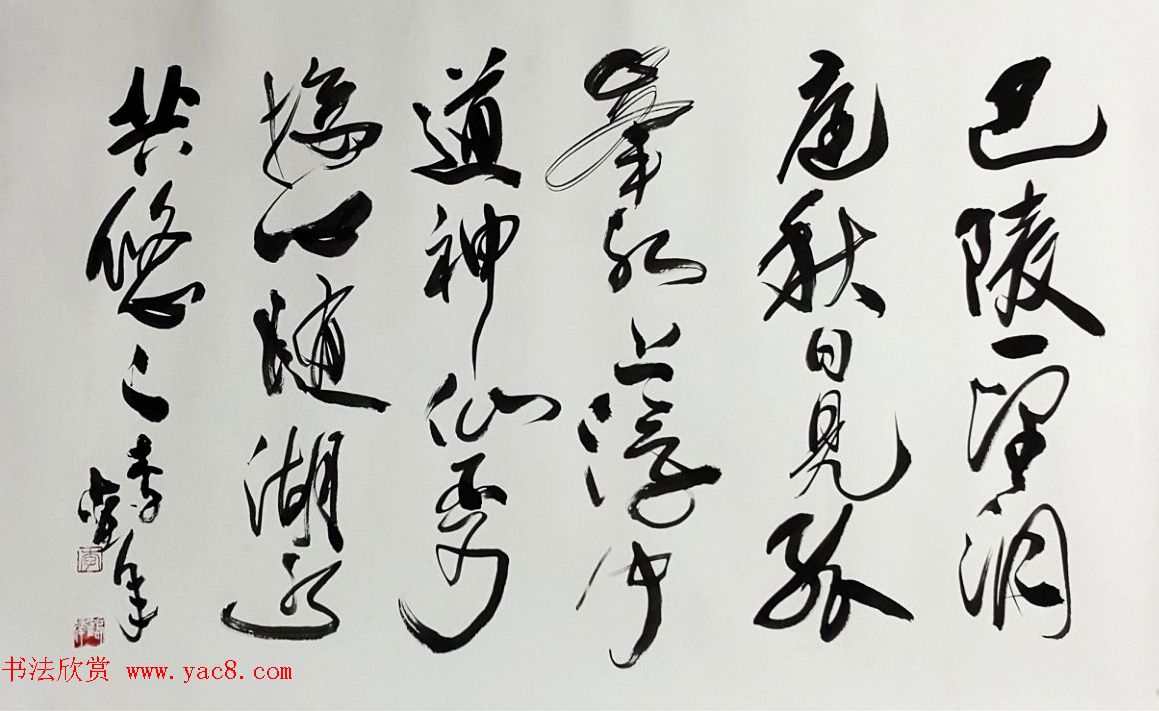 巴陵一望洞
庭秋日見孤
峯水上浮闻
道神仙不可
接心随湖水
共悠々
李
书法欣赏 www.yac8.com